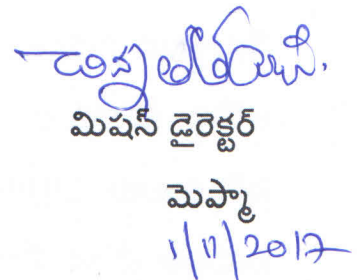 మిషన్ డైరెక్టర్
మెప్మా
1/11/2017